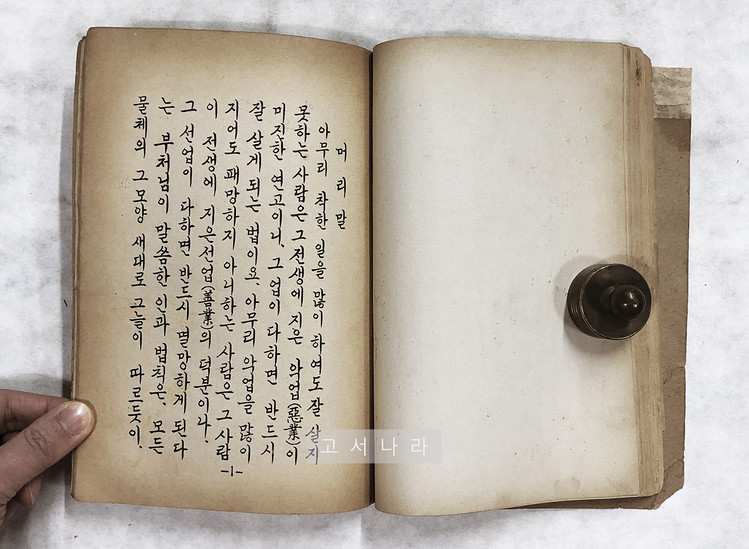 머리말
아무리 착한 일을 많이 하여도 잘 살지
못하는 사람은 그 전생에 지은 악업(惡業)이
미진한 연고이니, 그 업이 다하면 반드시
잘 살게 되는 법이요, 아무리 악업을 많이
지어도 패망하지 아니하는 사람은 그 사람
이 전생에 지은선업(善業)의 덕분이나.
그 선업이 다하면 반드시 멸망하게 된다
는 부처님이 말씀한 인과 법칙은, 모든
물체의 그모양 새대로 그늘이 따르듯이.
-1-
고서나라